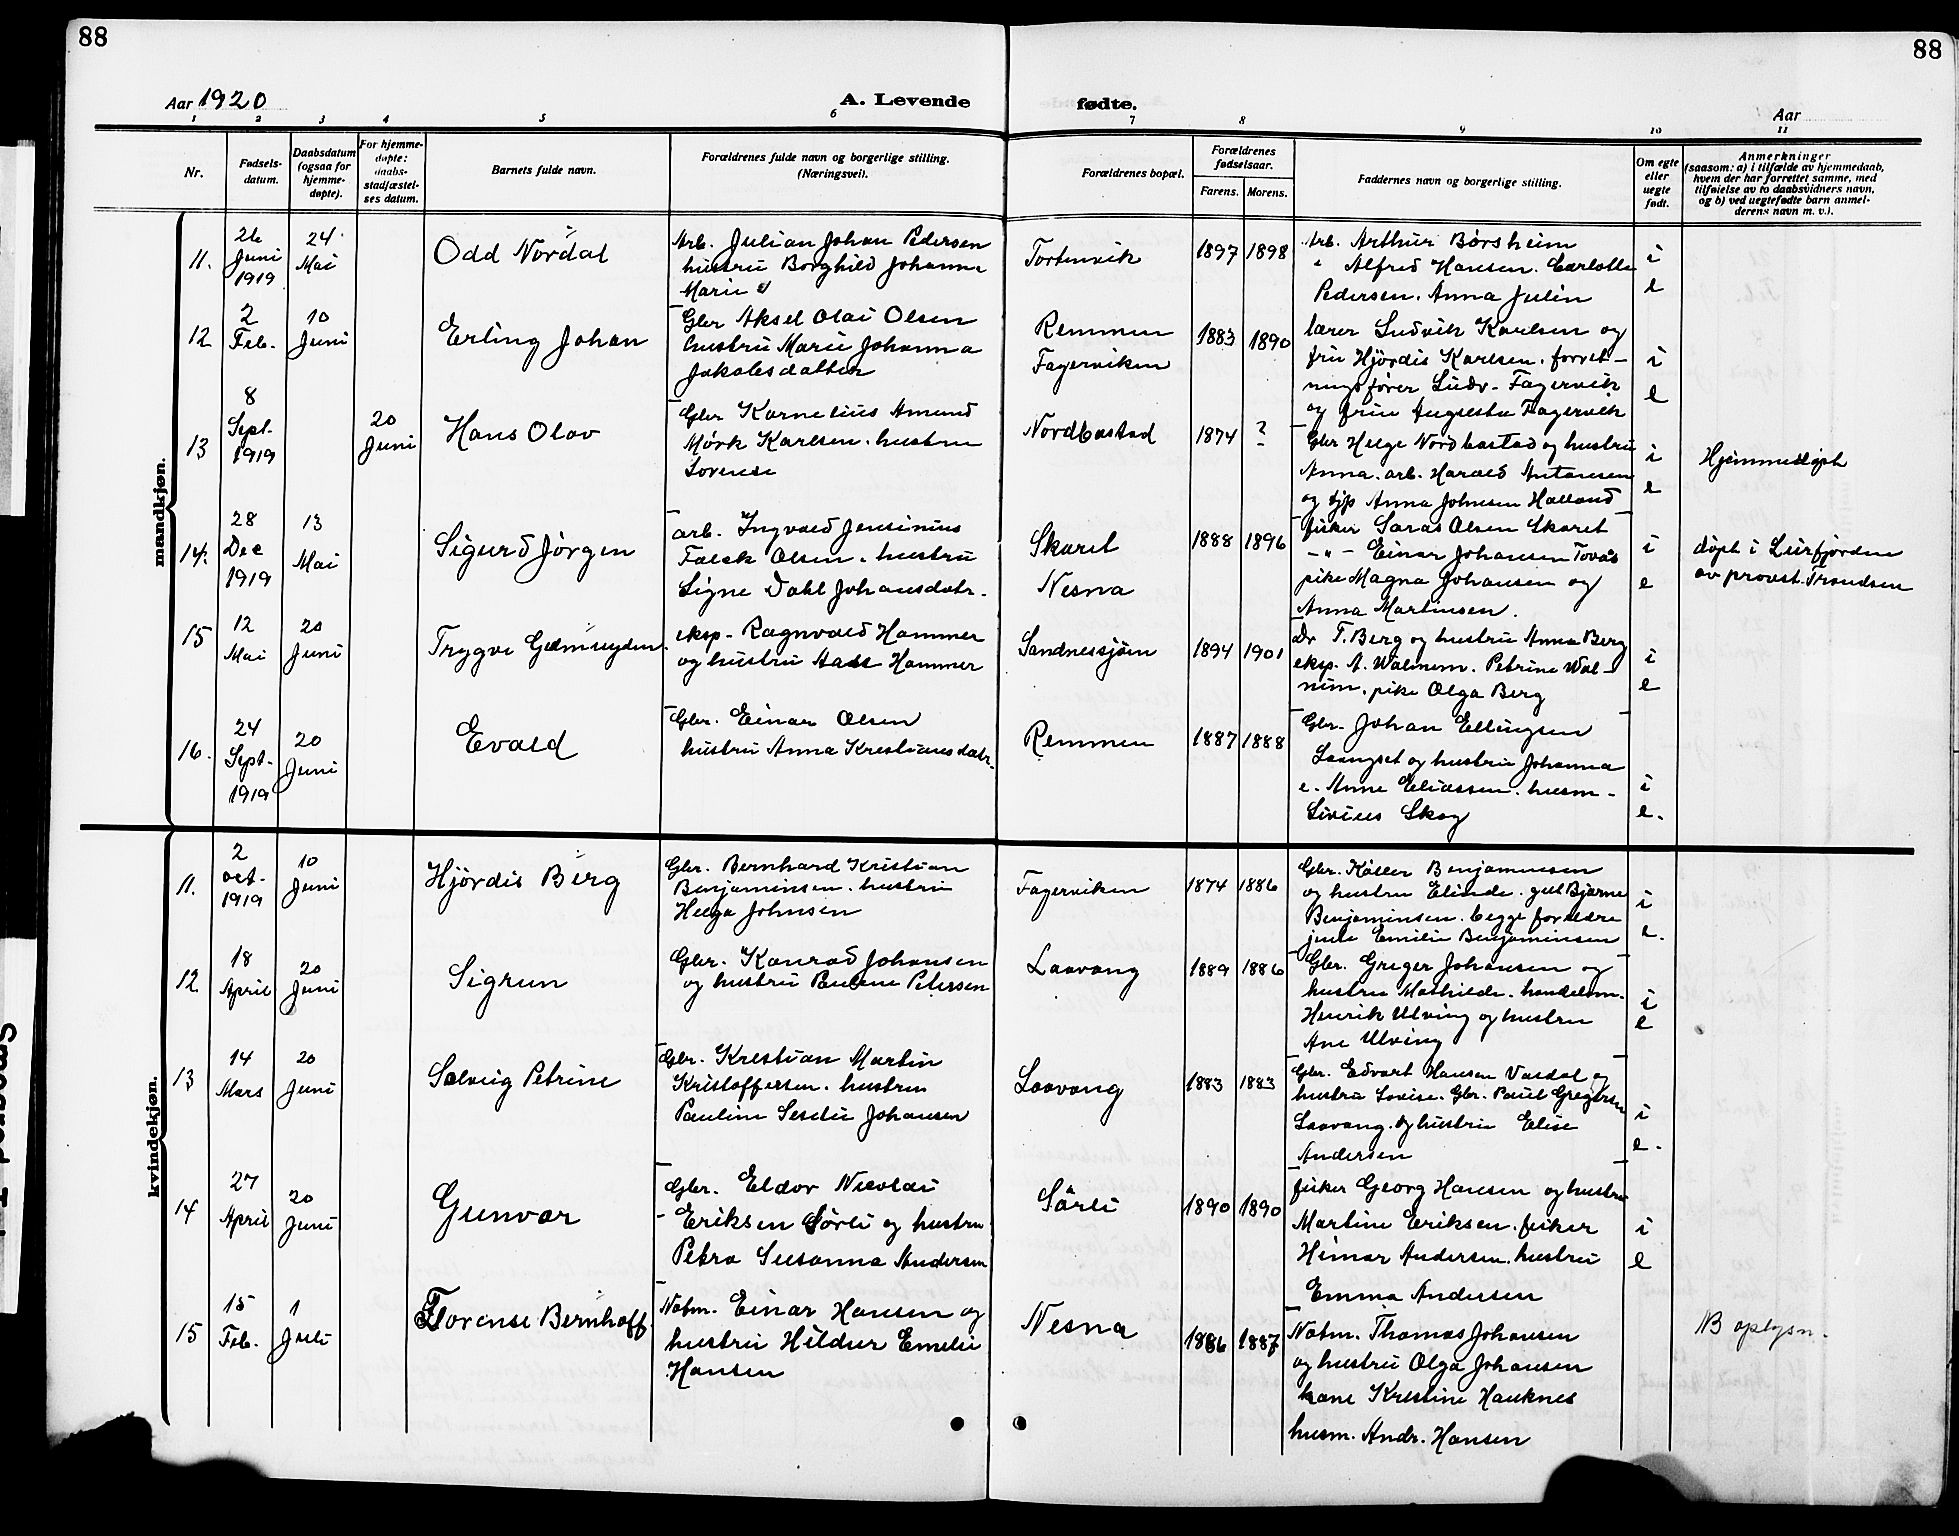 88
88
Aar 1920
A. Levende
fødte.
Aar
1 2 3 4 5 6 7 8 9 10 11
Nr.
Fødsels-
datum.
Daabsdatum
(ogsaa for
hjemme-
døpte).
For hjemme-
døpte:
daabs-
stadfæstel-
ses datum.
Barnets fulde navn.
Forældrenes fulde navn og borgerlige stilling.
(Næringsvei).
Forældrenes bopæl.
Forældrenes
fødselsaar.
Farens. Morens.
Faddernes navn og borgerlige stilling.
Om egte
eller
uegte
født.
Anmerkninger
(saasom: a) i tilfælde av hjemmedaab,
hvem der har forrettet samme, med
tilføielse av to daabsvidners navn,
og b) ved uegtefødte barn anmel-
derens navn m. v.).
mandkjøn.
11.
26
Juni
1919
24
Mai
Odd Nordal
Arb. Julian Johan Pedersen
hustru Borghild Johanna
Marie
Tortenvik
1897 1898
Arb. Arthur Børsheim
" Alfred Hansen. Carlotte
Pedersen. Anna Julin
i
e
12
2
Feb.
10
Juni
Erling Johan
Gbr Aksel Olai Olsen
hustru Marie Johanna
Jakobsdatter
Remmen
Fagerviken
1883 1890
lærer Ludvik Karlsen og
fru Hjördis Karlsen. forret-
nings fører Ludv. Fagervik
og frue Augusta Fagervik
i
e
13
8
Sept.
1919
20
Juni
Hans Olav
Gbr Kornelius Amund
Mørk Karlsen. hustru
Lovense
Nordbostad
1874 ?
Gbr Helge Nordbostad og hustru
Anna. arb. Harald Antonsen
og tjp Anna Johnsen Halland
i
e
Hjemmedøpt
14.
28
Dec
1919
13
Mai
Sigurd Jörgen
arb. Ingvald Jensinius
Falck Olsen. hustru
Signe Dahl Johansdatr.
Skaret
Nesna
1888 1896
fisker Saras Olsen Skaret
-"- Einar Johansen Tovås
pike Magna Johansen og
Anna Martinsen.
i
e
døpt i Lurfjorden
av provst. Trondsen
15
12
Mai
20
Juni
Trygve
eksp. Ragnvald Hammer
og hustru Aase Hammer
Sandnessjöen
1894 1901
Dr T. Berg og hustru Anna Berg
eksp. A. Walnum. Petrine Wal-
num. pike Olga Berg
i
e
16.
24
Sept.
1919
20
Juni
Evald
Gbr. Einar Olsen
hustru Anna Kristiansdatr.
Remmen
1887 1888
Gbr. Johan Ellingsen
Laangset og hustru Johanna
e. Anne Eliassen. husm-
Sivius Skog
i
e.
kvindekjøn.
11.
2
oct.
1919
10
Juni
Hjördis Berg
Gbr. Bernhard Kristian
Benjaminsen. hustru
Helga Johnsen
Fagerviken
1874 1886
Gbr. Køller Benjaminsen
og hustru Elinde. gut Bjarne
Benjaminsen. begge forældre
jente Emilie Benjaminsen
i
e.
12
18
April
20
Juni
Sigrun
Gbr. Konrad Johansen
og hustru Paulene Petersen
Laavong
1889 1886
Gbr. Greger Johansen og
hustru Mathilde. handelsm.
Henrik Ulving og hustru
Ane Ulving
i
e
13
14
Mars
20
Juni
Solveig Petrine
Gbr. Krestian Martin
Kristoffersen. hustru
Pauline Johansen
Laavong
1883 1883
Gbr. Edvart Hansen Vardal og
hustru Lovise. Gbr. Paul Gregersen
Laavong. og hustru Elise
Andersen
i
e.
14
27
April
20
Juni
Gunvor
Gbr. Eldor Nicolai
Eriksen Sörli og hustru
Petra Susanna Andersen
Sörli
1890 1890
fisker Georg Hansen og hustru
Martine Eriksen. fisker
Heimar Andersen. hustru
Emma Andersen
i
e
15
15
Feb.
1
Juli
Torense Bernhoff.
Notm. Einar Hansen og
hustru Hildur Emelie
Hansen
Nesna
1886 1887
Notm. Thomas Johansen
og hustru Olga Johansen
kone Kristine Hauknes
husm. Andr. Hansen
NB oplysn.